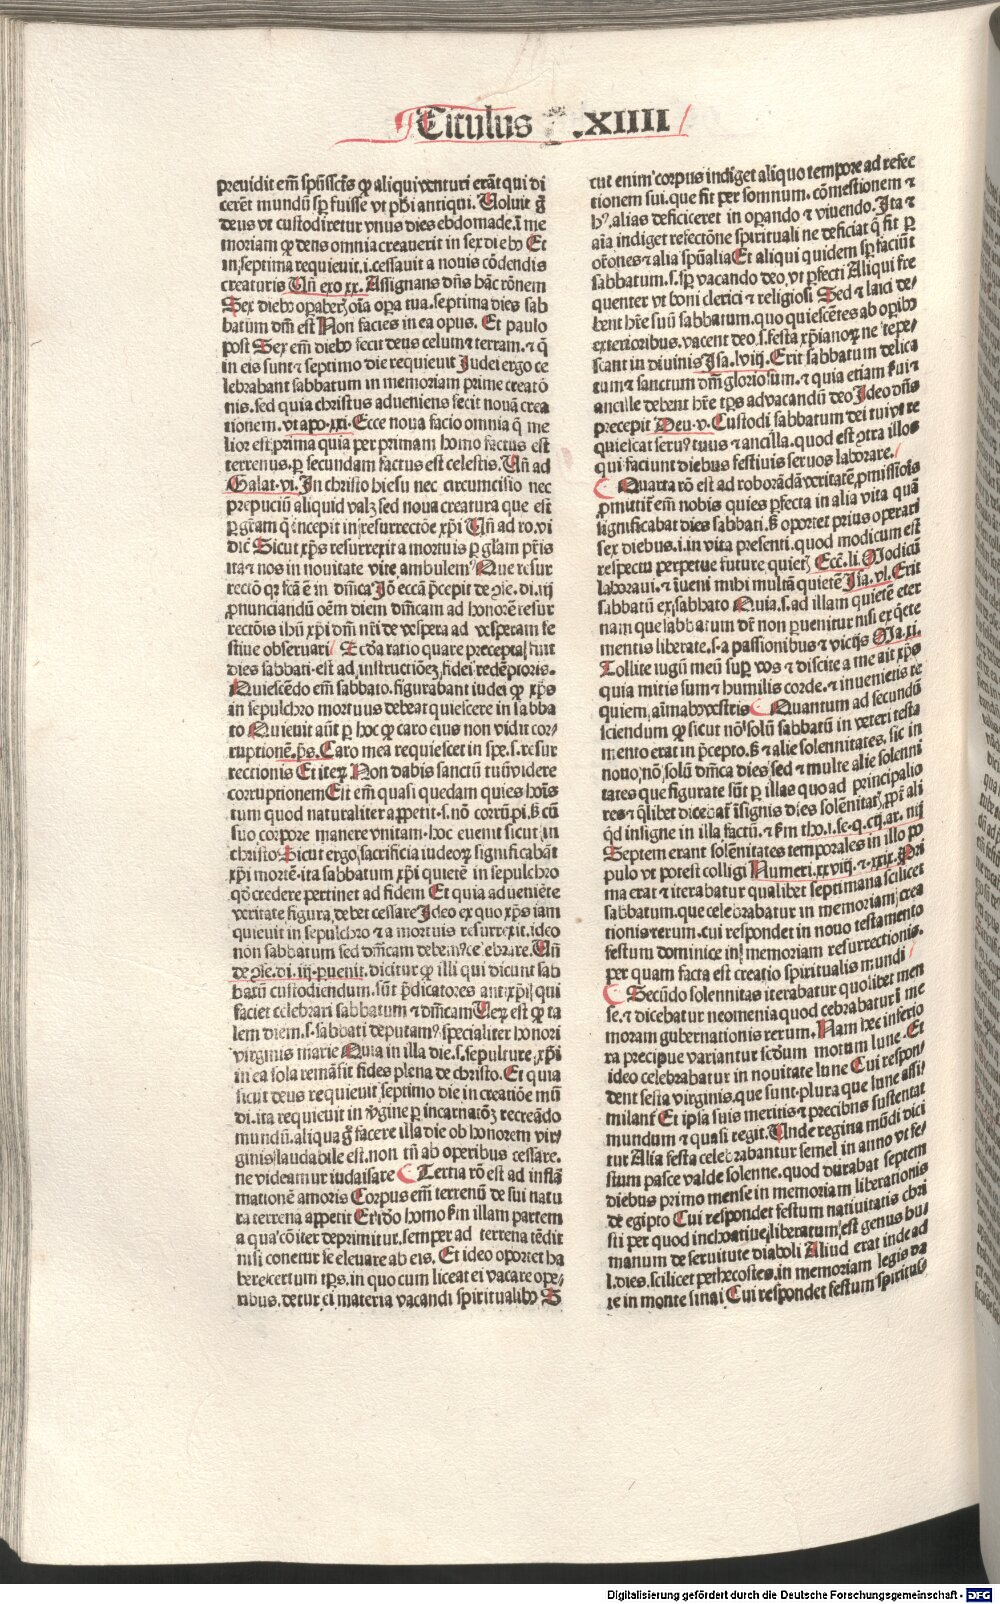 Titulus .XIIII
preuidit em̃ spũsscũs ꝙ aliqui venturi erãt qui di
cerẽt mundũ sꝑ fuisse vt pħi antiqui. Uoluit g̃
deus vt custodiretur vnus dies ebdomade. ĩ me
moriam ꝙ deus omnia creauerit in sex dieb9 Et
in septima requieuit .i. cessauit a nouis cõdendis
creaturis Uñ exo xx. Assignans dñs hãc rõnem
Sex dieb9 opaberꝭ oĩa oꝑa tua. septima dies sab
batum dñi est Non facies in ea opus. Et paulo
post Sex em̃ dieb9 fecit deus celum et terram. ⁊ q̃
in eis sunt ⁊ septimo die requieuit Iudei ergo ce
lebrabant sabbatum in memoriam prime creatõ
nis. sed quia christus adueniens fecit nouã crea
tionem. vt apo. xxi. Ecce noua facio omnia q̃ me
lior est prima quia per primam homo factus est
terrenus. ꝑ secundam factus est celestis. Uñ ad
Galat. vi. In christo hiesu nec circumcisio nec
prepuciũ aliquid valꝫ sed noua creatura que est
ꝑ grãm q̃ incepit in resurrectõe xp̃i Uñ ad ro. vi
dic̃ Sicut xp̃s resurrexit a mortuis ꝑ gl̃am pr̃is
ita ⁊ nos in nouitate vite ambulem9 Que resur
rectio qꝛ fc̃a ẽ in dm̃ca Iõ ecc̃a p̃cepit de ɔse. di. iij
ꝓnunciandũ oẽm diem dm̃icam ad honorẽ resur
rectõis ihũ xp̃i dñi nr̃i de vespera ad vesperam fe
stiue obseruari Scða ratio quare precepta sunt
dies sabbati est ad instructiõeꝫ fidei redẽptoris.
Quiescẽdo em̃ sabbato. figurabant iudei ꝙ xp̃s
in sepulchro mortuus debeat quiescere in sabba
to Quieuit aũt ꝑ hoc ꝙ caro eius non vidit cor-
ruptionẽ. p̃s. Caro mea requiescet in spe. s. resur
rectionis Et iteꝝ Non dabis sanctũ tuũ videre
corruptionem Est em̃ quasi quedam quies hoĩs
tum quod naturaliter appetit. s. nõ corrũpi. s̃ cũ
suo corpore manere vnitam. hoc euenit sicut in
christo Sicut ergo sacrificia iudeoꝝ significabãt
xp̃i mortẽ. ita sabbatum xp̃i quietẽ in sepulchro
qð credere pertinet ad fidem Et quia adueniẽte
veritate figura debet cessare Ideo ex quo xp̃s iam
quieuit in sepulchro ⁊ a mortuis resurrexit. ideo
non sabbatum sed dm̃icam debem9 celebrare. Uñ
de ɔse. di. iij. ꝑuenit. dicitur ꝙ illi qui dicunt sab
batũ custodiendum. sũt p̃dicatores antixp̃i qui
faciet celebrari sabbatum ⁊ dm̃icam Ueꝝ est ꝙ ta
lem diem. s. sabbati deputam9 specialiter honori
virginis marie Quia in illa die. s. sepulture xp̃i
in ea sola remãsit fides plena de christo. Et quia
sicut deus requieuit septimo die in creatiõe mũ
di. ita requieuit in v̓gine ꝑ incarnatõꝫ recreãdo
mundũ. aliqua g̃ facere illa die ob honorem vir-
ginis laudabile est. non tñ ab operibus cessare.
ne videamur iudaisare Tertia rõ est ad inflã
mationẽ amoris Corpus em̃ terrenũ de sui natu
ra terrena appetit Et iðo homo s̃m illam partem
a qua cõiter deprimitur. semper ad terrena tẽdit
nisi conetur se eleuare ab eis. Et ideo oportet ha
bere certum tp̃s. in quo cum liceat ei vacare ope-
ribus. detur ei materia vacandi spiritualib9 S
cut enim corpus indiget aliquo tempore ad refec
tionem sui. que fit per somnum. cõmestionem ⁊
h9. alias deficiceret in oꝑando ⁊ viuendo. Ita ⁊
aĩa indiget refectõne spirituali ne deficiat q̃ fit ꝑ
or̃ones ⁊ alia spũalia Et aliqui quidem sꝑ faciũt
sabbatum. s. sꝑ vacando deo. vt ꝑfecti Aliqui fre
quenter vt boni clerici ⁊ religiosi Sed ⁊ laici de-
bent hr̃e suũ sabbatum. quo quiescẽtes ab oꝑib9
exterioribus. vacent deo. s. festa xp̃ianoꝝ ne tepe-
scant in diuinis Isa. lviij. Erit sabbatum delica
tum ⁊ sanctum dñi gloriosum. ⁊ quia etiam s̃ui ⁊
ancille debent hr̃e tp̃s ad vacandũ deo Ideo dñs
precepit Deu. v. Custodi sabbatum dei tui vt re
quiescat seru9 tuus ⁊ ancilla. quod est ɔtra illos
qui faciunt diebus festiuis seruos laborare.
Quarta rõ est ad roborãdã veritatẽ ꝓmissiõis
ꝓmittit em̃ nobis quies ꝑfecta in alia vita quã
significabat dies sabbati. s̃ oportet prius operari
sex diebus. i. in vita presenti. quod modicum est
respectu perpetue future quietꝭ Ecc̃. li. Modicũ
laboraui. ⁊ iueni mihi multã quietẽ Isa. vl. Erit
sabbatũ ex sabbato Quia. s. ad illam quietẽ eter
nam que sabbatum dr̃ non ꝑuenitur nisi ex q̃ete
mentis liberate. s. a passionibus ⁊ vicijs Ma. xi.
Tollite iugũ meũ suꝑ vos ⁊ discite a me ait xp̃s
quia mitis sum ⁊ humilis corde. ⁊ inuenietis re
quiem aĩmab9 vestris Quantum ad secundũ
sciendum ꝙ sicut nõ solũ sabbatũ in veteri testa
mento erat in p̃cepto. s̃ ⁊ alie solennitates. sic in
nouo. nõ solũ dm̃ca dies sed ⁊ multe alie solenni
tates que figurate sũt ꝑ illas quo ad principalio
res ⁊ q̃libet dicebat̃ ĩsignis dies solẽnitatꝭ ꝓpt̃ ali
qð insigne in illa factũ. ⁊ s̃m tho. i. se. q. cij. ar. iiij
Septem erant solẽnitates temporales in illo po
pulo vt potest colligi Numeri. xxviij. ⁊ xxix. Pri
ma erat ⁊ iterabatur qualibet septimana scilicet
sabbatum. que celebrabatur in memoriam crea
tionis rerum. cui respondet in nouo testamento
festum dominice in memoriam resurrectionis.
per quam facta est creatio spiritualis mundi
Secũdo solennitas iterabatur quolibet men
se. ⁊ dicebatur neomenia quod cebrabatur ĩ me
moram gubernationis rerum. Nam hec inferio
ra precipue variantur scðum motum lune. Et
ideo celebrabatur in nouitate lune Cui respon-
dent festa virginis. que sunt plura que lune assi-
milant̃ Et ipsa suis meritis ⁊ precibus sustentat
mundum ⁊ quasi regit. Unde regina mũdi dici
tur Alia festa celebrabantur semel in anno vt fe-
stum pasce valde solenne. quod durabat septem
diebus primo mense in memoriam liberationis
de egipto Cui respondet festum natiuitatis chri
sti per quod inchoatiue liberatum est genus hu-
manum de seruitute diaboli Aliud erat inde ad
l. dies. scilicet pethecostes. in memoriam legis da
te in monte sinai Cui respondet festum spiritus-
Digitalisierung gefördert durch die Deutsche Forschungsgemeinschaft - DFG